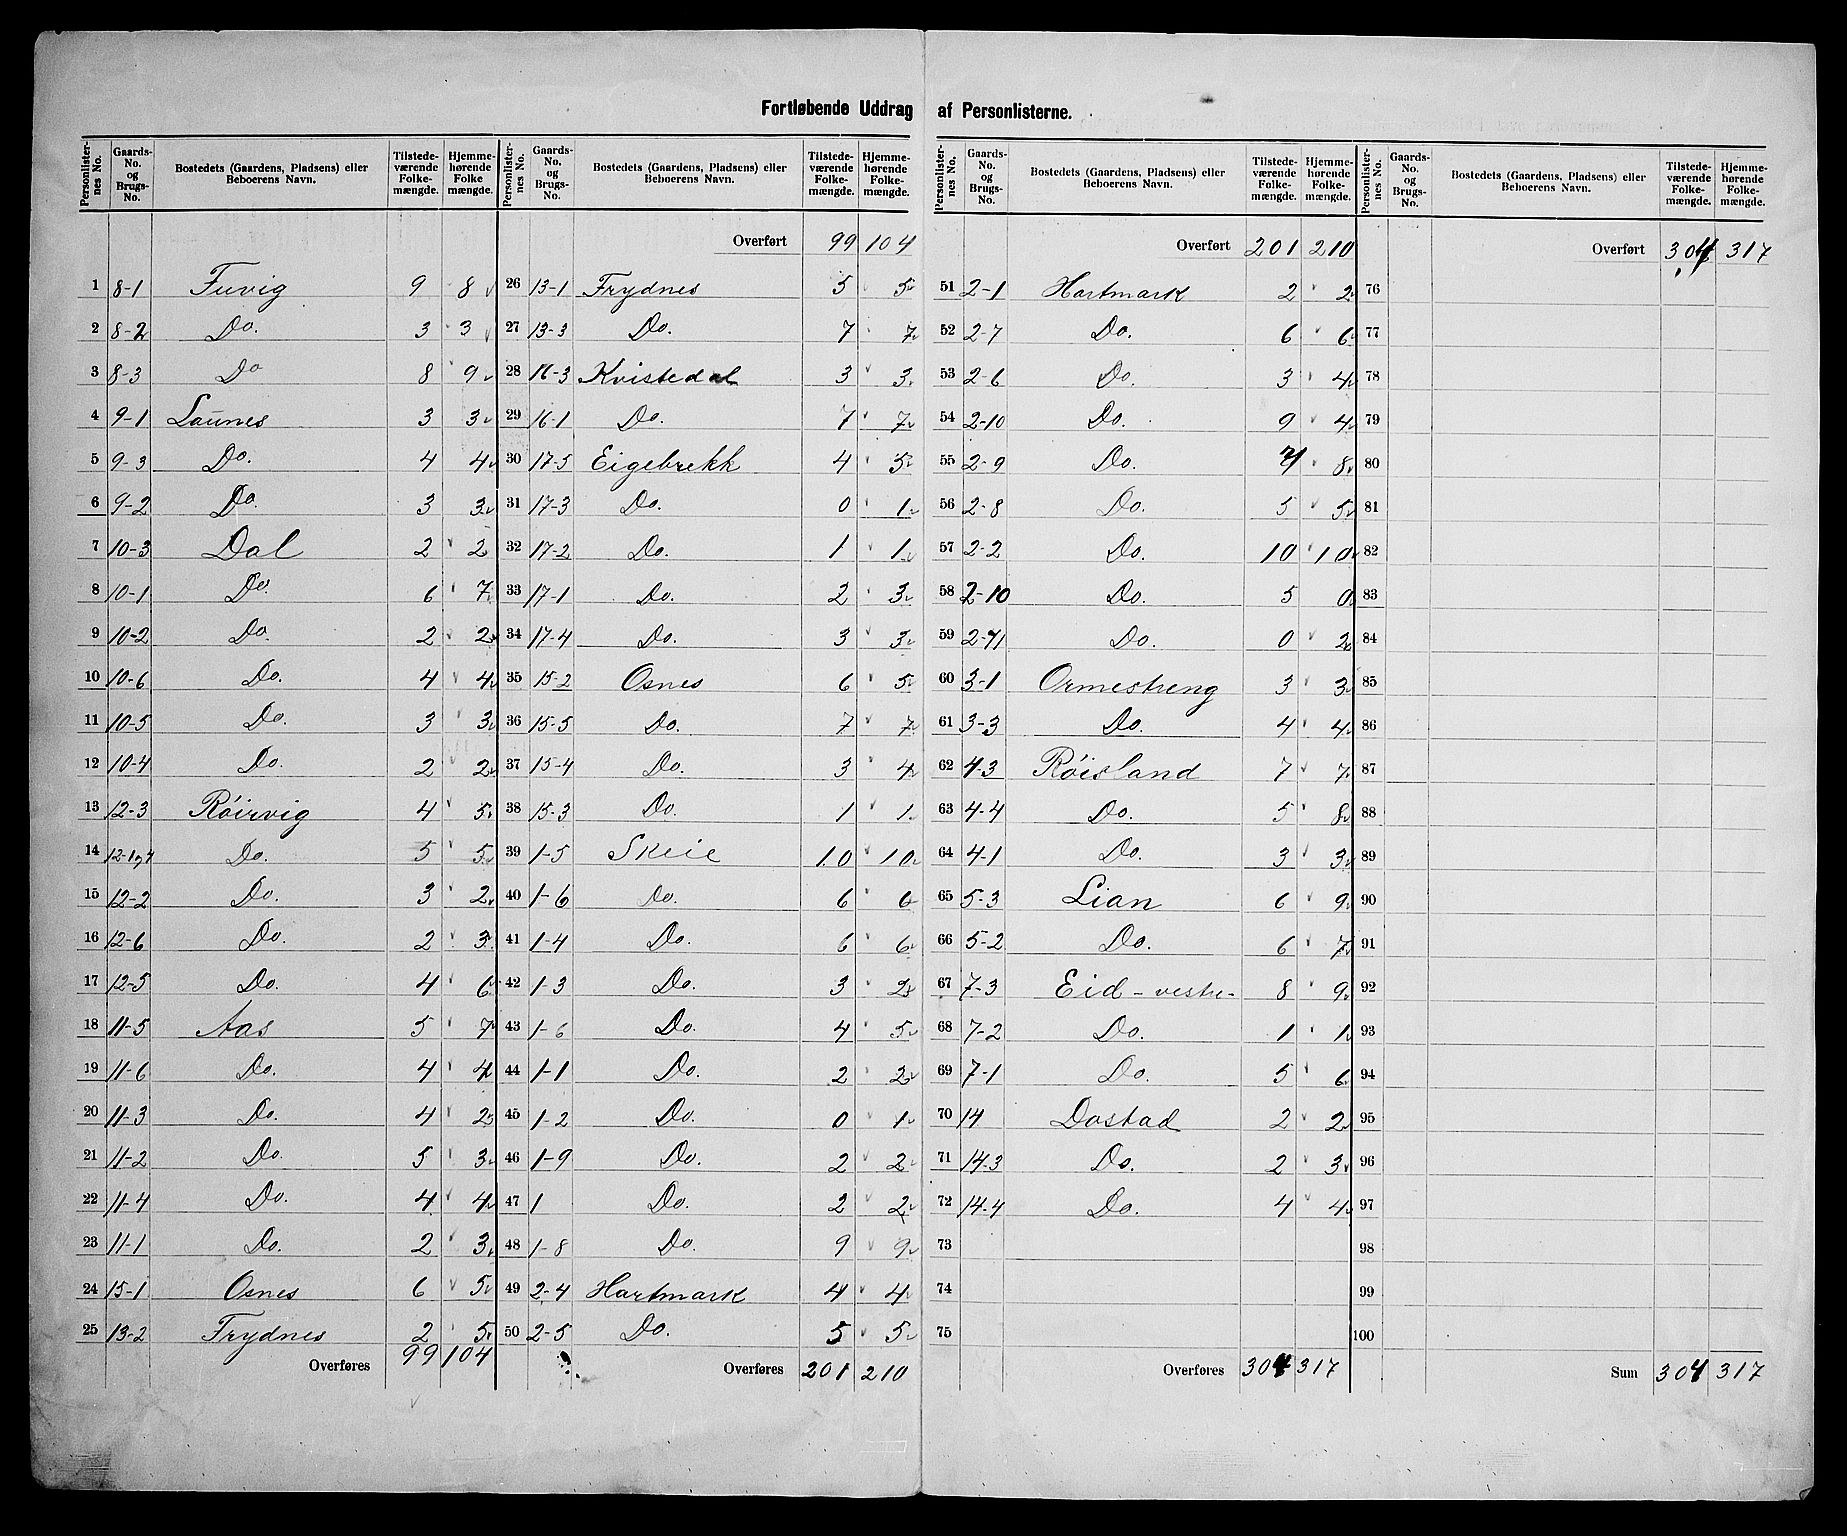 Fortløbende Uddrag af Personlisternes.
Personlister-nes No. | Gaards-No. og Brugs-No. | Bostedets (Gaardens, Pladsens) eller Beboerens Navn. | Tilstede-værende Folke-mængde. | Hjemme-hørende Folke mængde.
1 8-1 Fuvig 9 8
2 8-2 Do. 3 3
3 8-3 Do 8 9
4 9-1 Launes 3 3
5 9-3 Do. 4 4
6 9-2 Do. 3 3
7 10-3 Dal 2 2
8 10-1 Do. 6 7
9 10-2 Do. 2 2
10 10-6 Do. 4 4
11 10-5 Do. 3 3
12 10-4 Do. 2 2
13 12-3 Røirvig 4 5
14 12-1,4 Do. 5 5
15 12-2 Do. 3 2
16 12-6 Do. 2 3
17 12-5 Do. 4 6
18 11-5 Aas 5 7
19 11-6 Do. 4 4
20 11-3 Do. 4 2
21 11-2 Do. 5 3
22 11-4 Do. 4 4
23 11-1 Do. 2 3
24 15-1 Osnes 6 5
25 13-2 Frydnes 2 5
Overføres 99 104
Personlister-nes No. | Gaards-No. og Brugs-No. | Bostedets (Gaardens, Pladsens) eller Beboerens Navn. | Tilstede-værende Folke-mængde. | Hjemme-hørende Folke-mængde.
Overført 99 104
26 13-1 Frydnes 5 5
27 13-3 Do. 7 7
28 16-3 Kvistedal 3 3
29 16-1 Do. 7 7
30 17-5 Eigebrekk 4 5
31 17-3 Do. 0 1
32 17-2 Do. 1 1
33 17-1 Do. 2 3
34 17-4 Do. 3 3
35 15-2 Osnes 6 5
36 15-5 Do. 7 7
37 15-4 Do. 3 4
38 15-3 Do. 1 1
39 1-5 Skeie 10 10
40 1-6 Do. 6 6
41 1-4 Do. 6 6
42 1-3 Do. 3 2
43 1-6 Do. 4 5
44 1-1 Do. 2 2
45 1-2 Do. 0 1
46 1-9 Do. 2 2
47 1 Do. 2 2
48 1-8 Do. 9 9
49 2-4 Hartmark 4 4
50 2-5 Do. 5 5
Overføres 201 210
Personlister-nes No. | Gaards-No. og Brugs-No. | Bostedets (Gaardens, Pladsens) eller Beboerens Navn. | Tilstede-værende Folke-mængde. | Hjemme-hørende Folke-mængde.
Overført 201 210
51 2-1 Hartmark 2 2
52 2-7 Do. 6 6
53 2-6 Do. 3 4
54 2-10 Do. 9 4
55 2-9 Do. 8
56 2-8 Do. 5 5
57 2-2 Do. 10 10
58 2-10 Do. 5 0
59 2-11 Do. 0 2
60 3-1 Ormestreng 3 3
61 3-3 Do. 4 4
62 4-3 Røisland 7 7
63 4-4 Do. 5 8
64 4-1 Do. 3 3
65 5-3 Lian 6 9
66 5-2 Do. 6 7
67 7-3 Eid - vestre - 8 9
68 7-2 Do. 1 1
69 7-1 Do. 5 6
70 14 Dostad 2 2
71 14-3 Do. 2 3
72 14-4 Do. 4 4
73
74
75
Overføres 304 317
Personlister-nes No. | Gaards-No. og Brugs-No. | Bostedets (Gaardens, Pladsens) eller Beboerens Navn. | Tilstede-værende Folke-mængde. | Hjemme-hørende Folke-mængde.
Overført 304 317
76
77
78
79
80
81
82
83
84
85
86
87
88
89
90
91
92
93
94
95
96
97
98
99
100
Sum 304 317